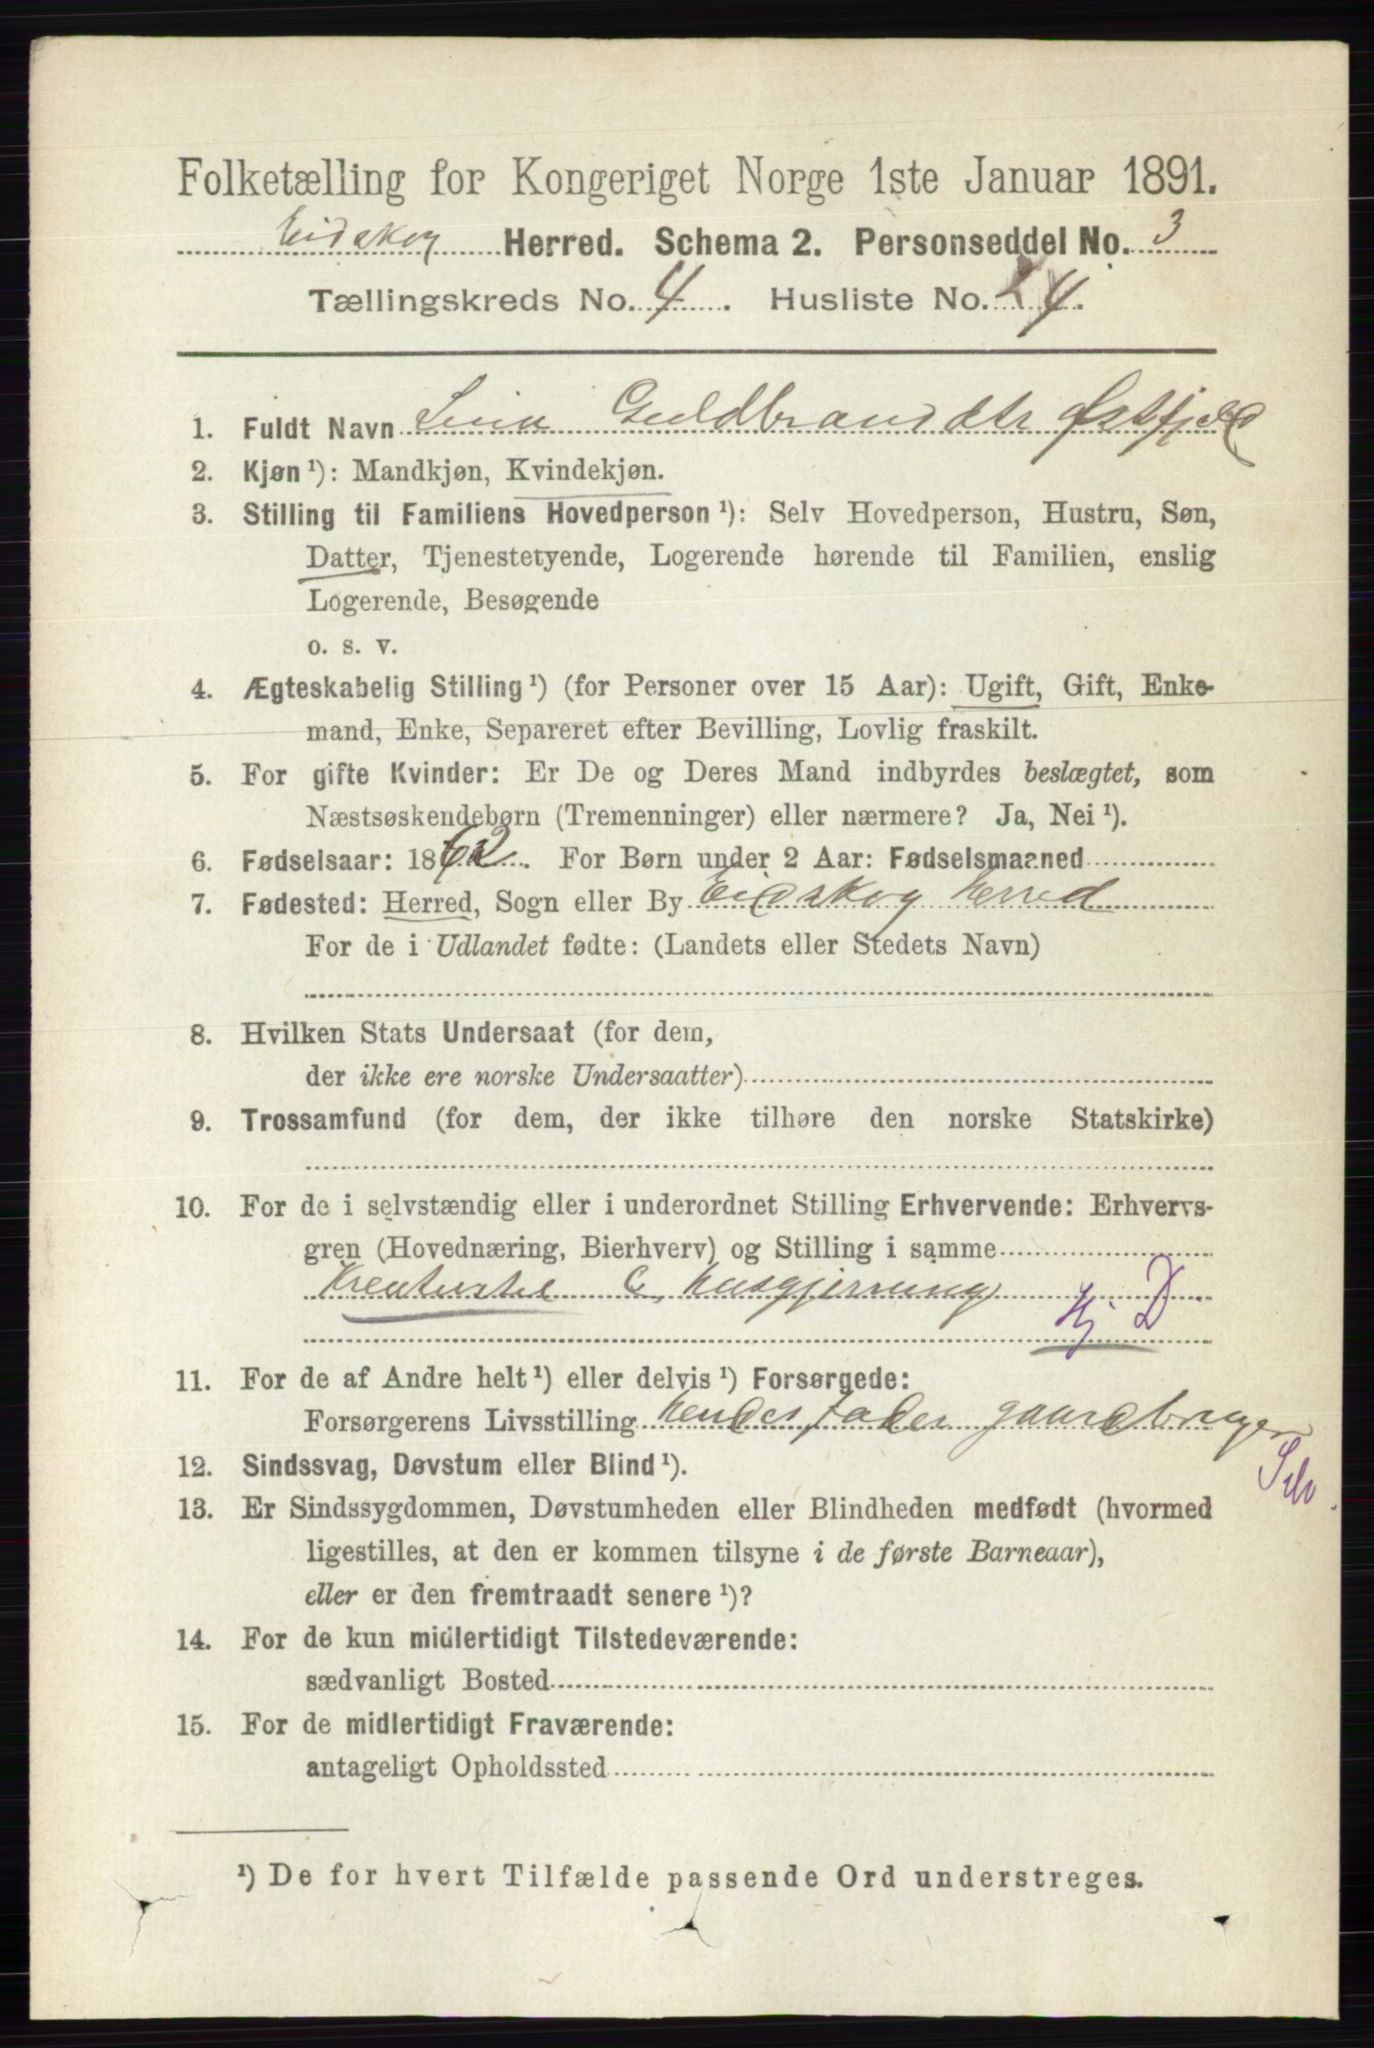 Folketælling for Kongeriget Norge 1ste Januar 1891.
Eidskog Herred. Schema 2. Personseddel No. 3
Tællingskreds No. 4. Husliste No. 4.
1. Fuldt Navn Guldbrandsdtr Østfjeld
2. Kjøn ¹): Mandkjøn, Kvindekjøn.
3. Stilling til Familiens Hovedperson ¹): Selv Hovedperson, Hustru, Søn,
Datter, Tjenestetyende, Logerende hørende til Familien, enslig
Logerende, Besøgende
o. s. v.
4. Ægteskabelig Stilling ¹) (for Personer over 15 Aar): Ugift, Gift, Enke-
mand, Enke, Separeret efter Bevilling, Lovlig fraskilt.
5. For gifte Kvinder: Er De og Deres Mand indbyrdes beslægtet, som
Næstsøskendebørn (Tremenninger) eller nærmere? Ja, Nei ¹).
6. Fødselsaar: 1862. For Børn under 2 Aar: Fødselsmaaned
7. Fødested: Herred, Sogn eller By Eidskog Herred
For de i Udlandet fødte: (Landets eller Stedets Navn)
8. Hvilken Stats Undersaat (for dem,
der ikke ere norske Undersaatter)
9. Trossamfund (for dem, der ikke tilhøre den norske Statskirke)
10. For de i selvstændig eller i underordnet Stilling Erhvervende: Erhvervs-
gren (Hovednæring, Bierhverv) og Stilling i samme
Kreaturstel & Husgjerning Hj D
11. For de af Andre helt ¹) eller delvis ¹) Forsørgede:
Forsørgerens Livsstilling Hendes fader gaardbruger
Selv.
12. Sindssvag, Døvstum eller Blind ¹).
13. Er Sindssygdommen, Døvstumheden eller Blindheden medfødt (hvormed
ligestilles, at den er kommen tilsyne i de første Barneaar),
eller er den fremtraadt senere ¹)?
14. For de kun midlertidigt Tilstedeværende:
sædvanligt Bosted
15. For de midlertidigt Fraværende:
antageligt Opholdssted
¹) De for hvert Tilfælde passende Ord understreges.